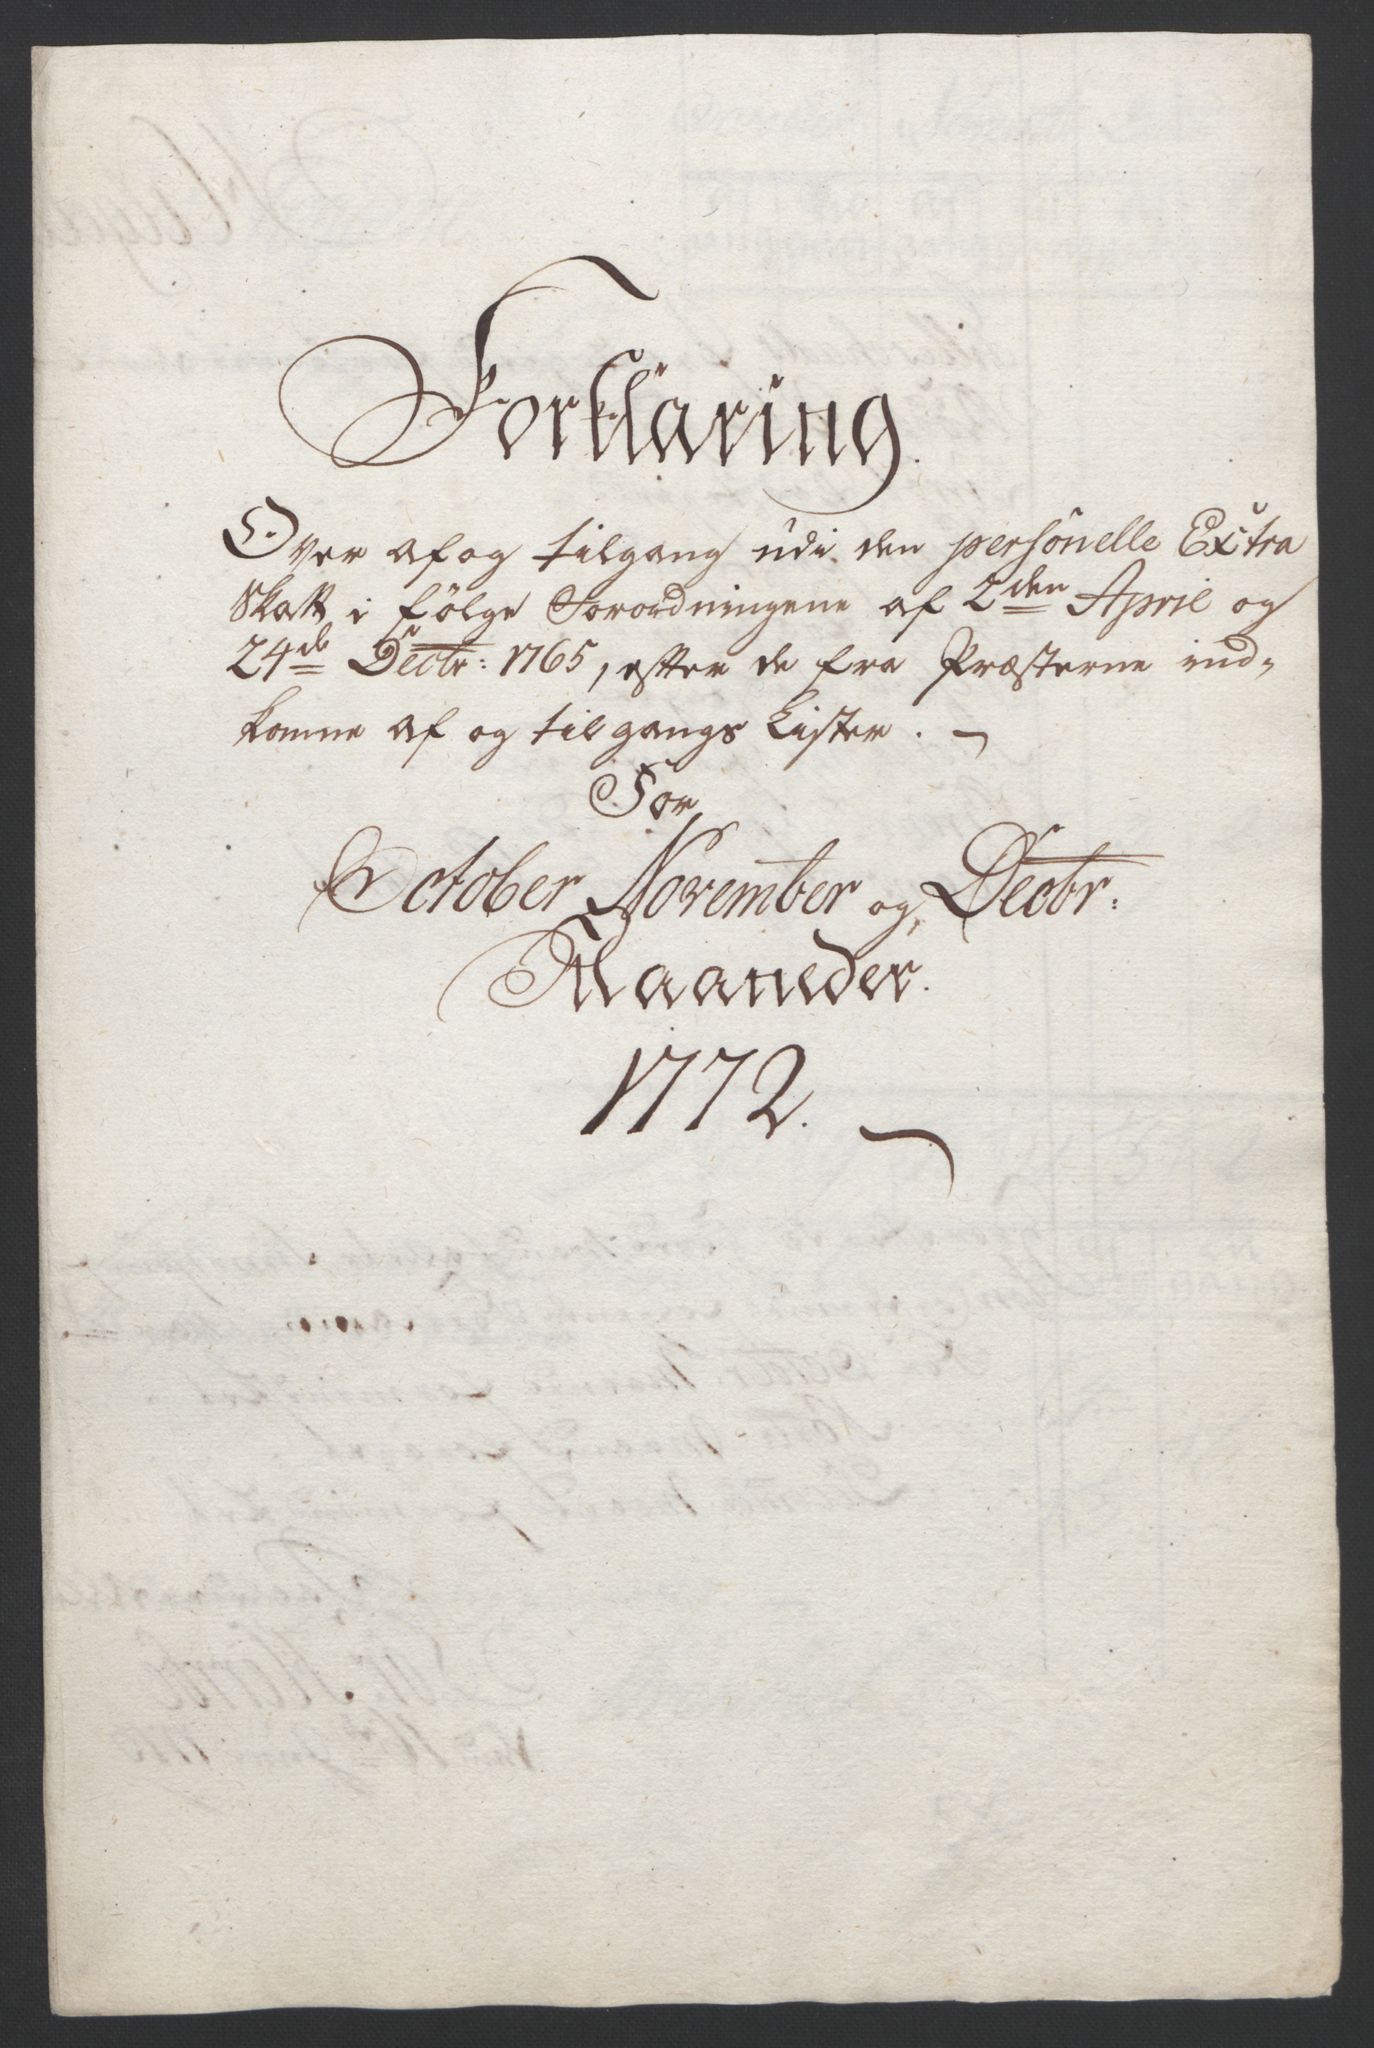 Forklaring.
Over af og tilgang udi den personelle Extra
Skatt i følge Forordningene af 2den April og
24de Dectr: 1765, efter de fra Præsterne ind-
komne af og tilgangs Lister.
For
October November og Decbr:
Maaneder.
1772.